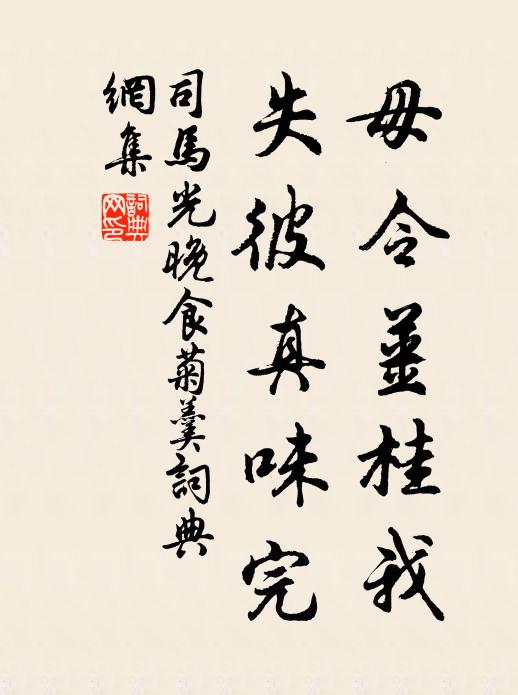 毋令薑桂我
失彼真味完
司馬光晚食菊羹詞典
網集
詞典
网印